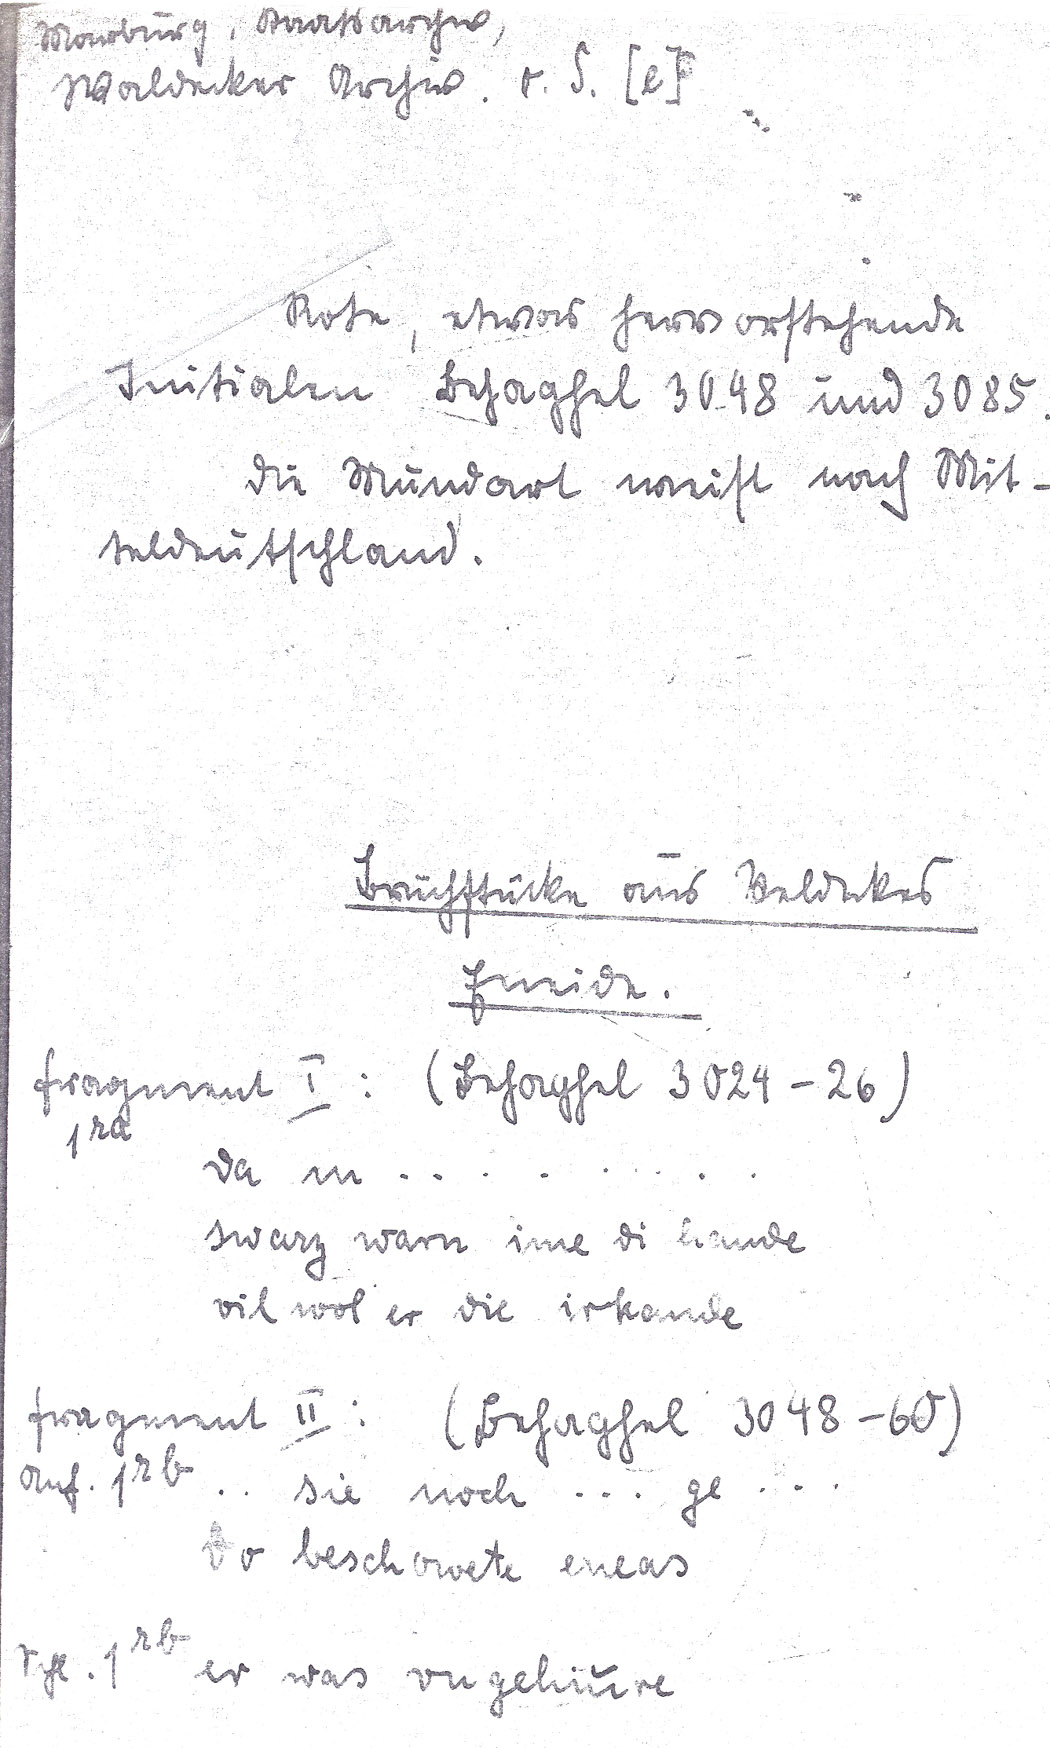 Marburg, Staatsarchiv,
Waldecker Archiv. o. S. [e]
Rote, etwas hervorstehende
Initialen Behaghel 3048 und 3085.
Die Mundart weist nach Mit-
teldeutschland.
Bruchstücke aus Veldekes
Eneide.
Fragment I: (Behaghel 3024-26)
1ra
da m . . . . . . . .
swarz warn ime di hande
vil wol er die irkande
Fragment II: (Behaghel 3048-60)
Anf. 1rb . . sie noch . . . ge . . .
Do beschowete eneas
Schl. 1rb er was vngehiure